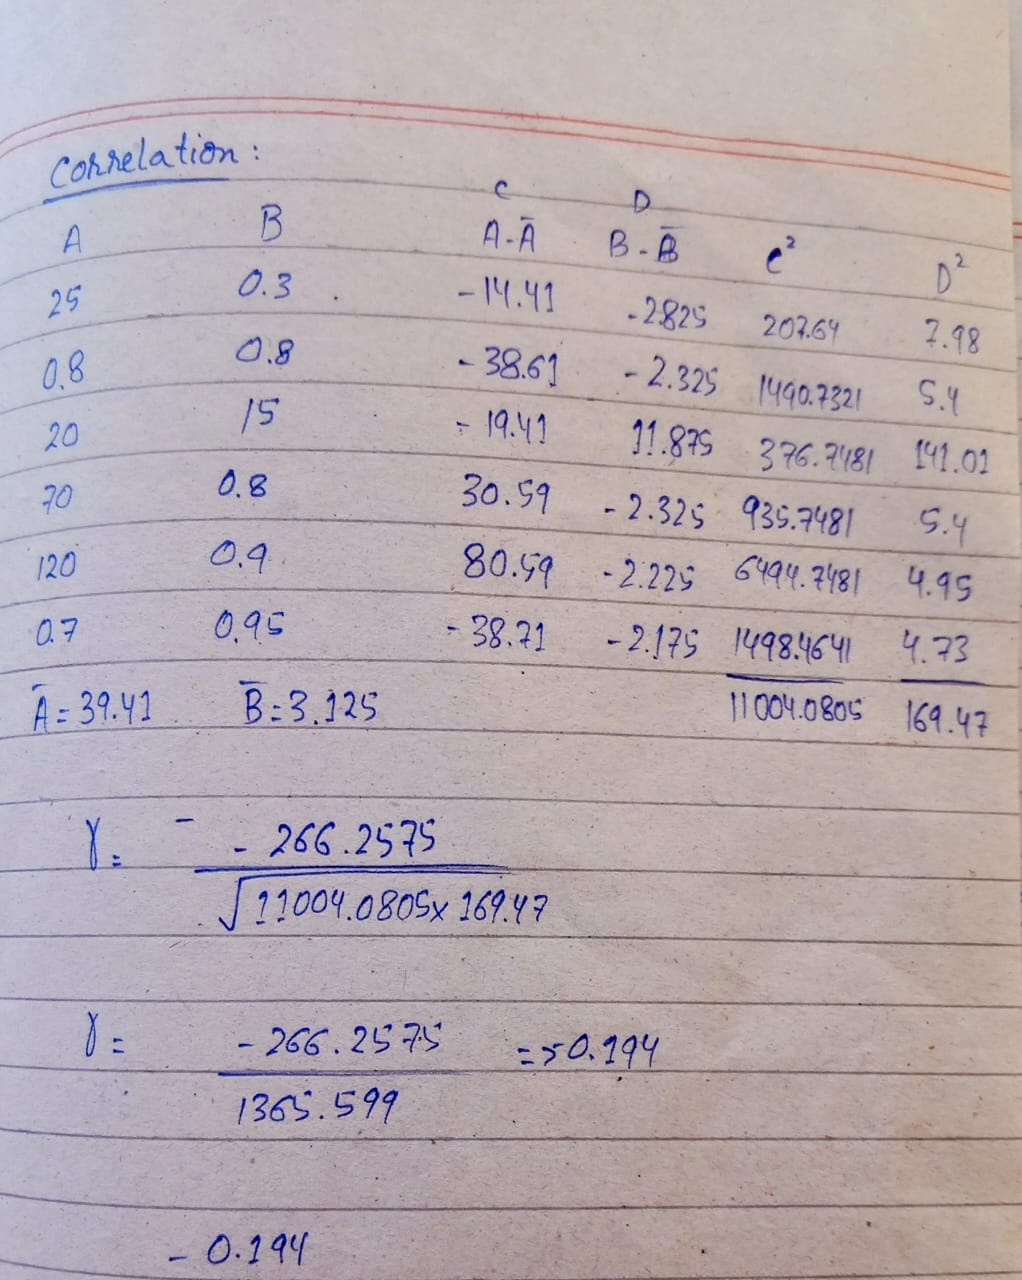 Correlation :
C D
A B A-Ā B-B̄ C² D²
25 0.3 -14.41 -2.825 207.64 7.98
0.8 0.8 -38.61 -2.325 1490.7321 5.4
20 15 -19.41 11.875 376.7481 141.01
70 0.8 30.59 -2.325 935.7481 5.4
120 0.9 80.59 -2.225 6494.7481 4.95
0.7 0.95 -38.71 -2.175 1498.4641 4.73
Ā = 39.41 B̄ = 3.125 11004.0805 169.47
γ = - - 266.2575
√11004.0805 x 169.47
γ = - 266.2575 => 0.194
1365.599
- 0.194